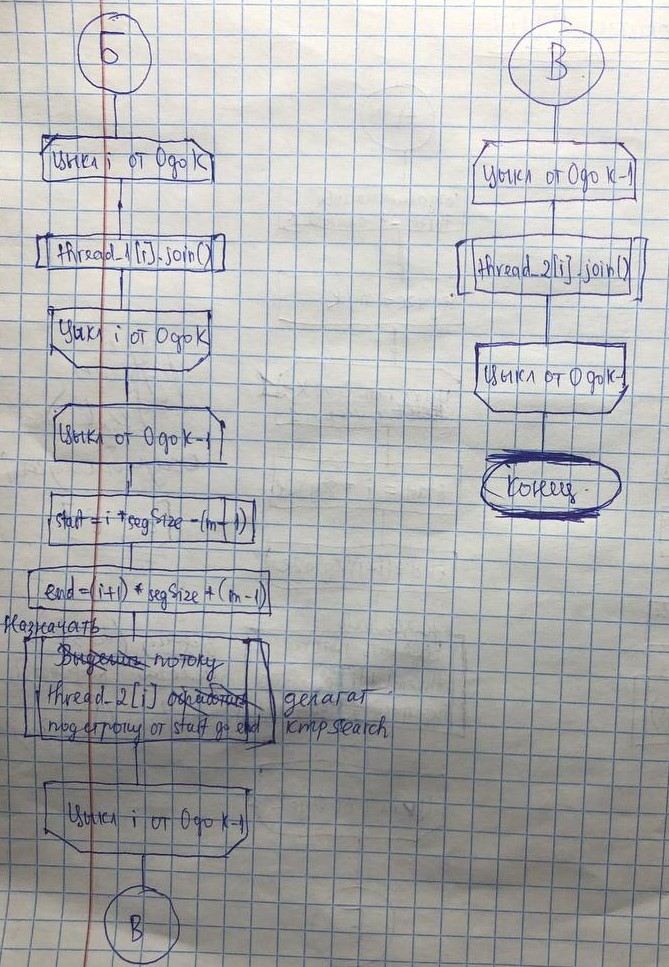 Б
Цыкл i от 0 до K
thread_1[i].join()
Цыкл i от 0 до K
Цыкл от 0 до K-1
start = i * segSize - (m-1)
end = (i+1) * segSize + (m-1)
Назначать
потоку
thread_2[i] делагат
подстроку от start до end kmpsearch
Цыкл i от 0 до K-1
В
В
Цыкл от 0 до K-1
thread_2[i].join()
Цыкл от 0 до K-1
Конец.